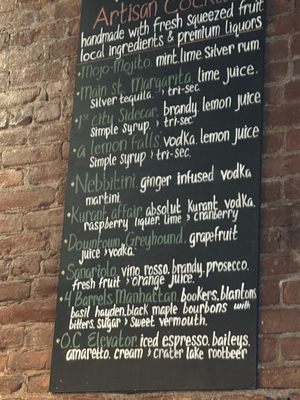 Artisan Cock
handmade with fresh squeezed fruit
local ingredients & premium liquors
· Mojo-Mojito. mint. lime. silver rum.
· Main St. Margarita. lime juice.
Silver tequila & tri-sec.
· 1st City Sidecar. brandy. lemon juice
Simple syrup & tri-sec.
· a Lemon Falls. vodka. lemon juice
Simple syrup & tri-sec.
· Nebbitini. ginger infused vodka
martini.
· Kurant affair. absolut kurant vodka.
raspberry liquer. lime & cranberry
· Downtown Greyhound. grapefruit
juice & vodka.
· Sangriolo. vino rosso. brandy. prosecco.
fresh fruit & orange juice.
· 4 Barrels Manhattan. bookers. blantons
basil hayden. black maple bourbons with
bitters. sugar & sweet vermouth.
· O.C. Elevator. iced espresso. baileys.
amaretto. cream & crater lake rootbeer